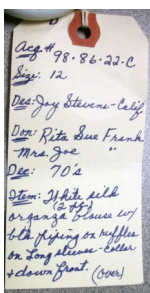 Acq# 98.86.22.C
Size: 12
Des: Joy Stevens-Calif
Don: Rita Sue Frank
Mrs. Joe "
Dec: 70's
Item: White silk
(2 pc)
organza blouse w/
blk piping on ruffles
on long sleeves-collar
+ down front. (over)